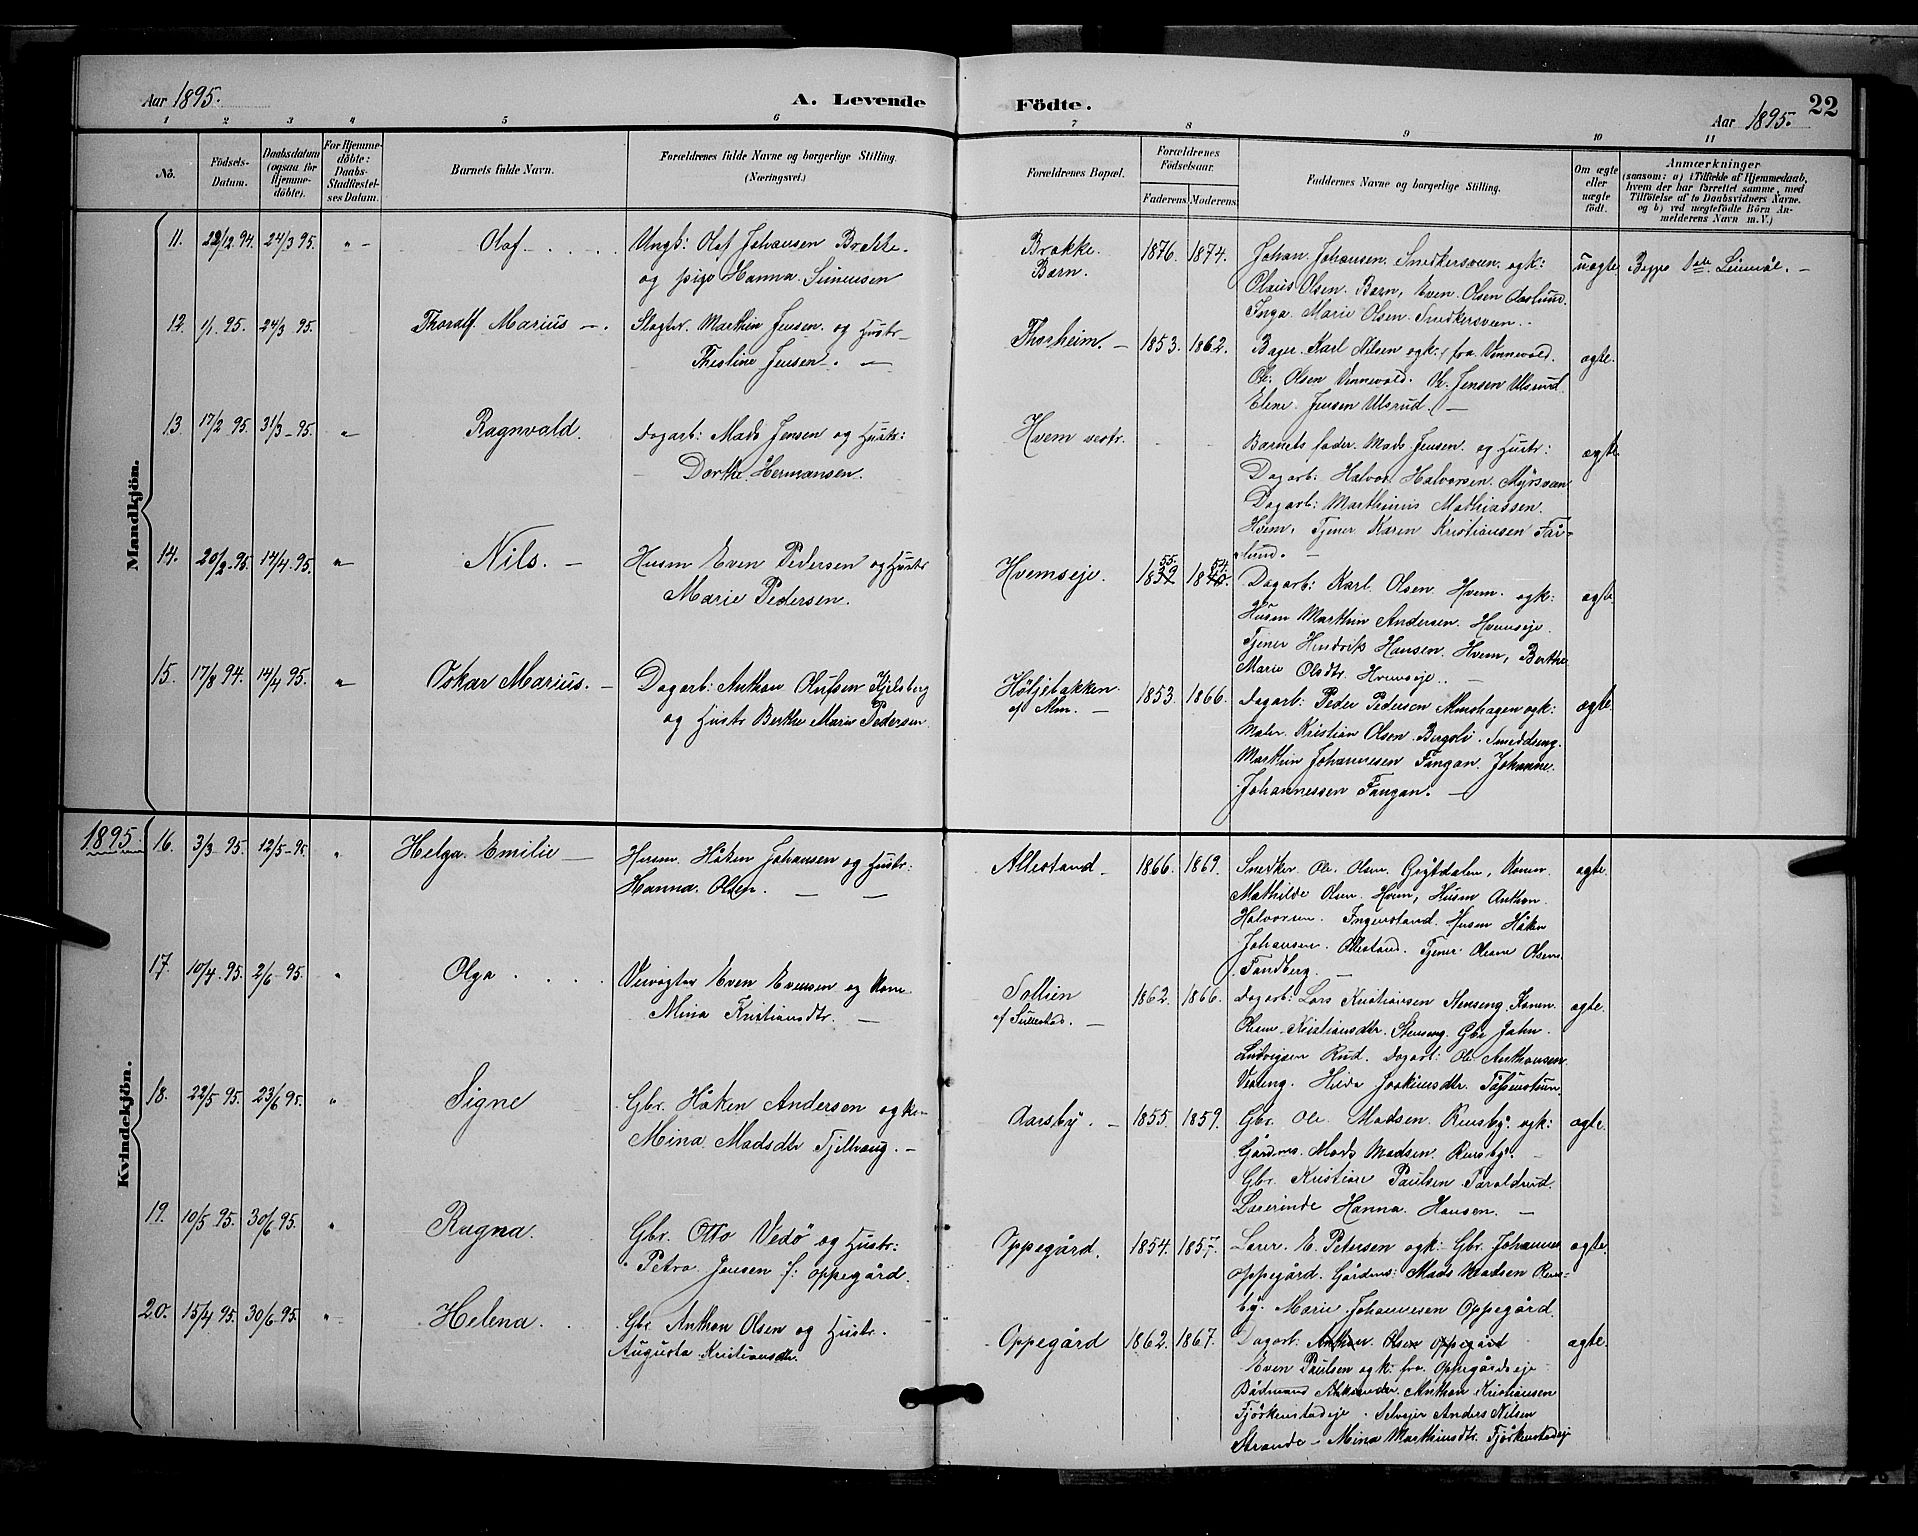 Aar 1895. A. Levende Födte. Aar 1895. 22
1 2 3 4 5 6 7 8 9 10 11
No. Födsels-Datum. Daabsdatum (ogsaa for Hjemme-döbte). For Hjemme-döbte: Daabs-Stadfæstelses Datum. Barnets fulde Navn. Forældrenes fulde Navne og borgerlige Stilling. (Næringsvei.) Forældrenes Bopæl. Forældrenes Födselsaar. Faderens Moderens Faddernes Navne og borgerlige Stilling. Om ægte eller uægte født. Anmærkninger (saasom: a) i Tilfælde af Hjemmedaab, hvem der har forrettet samme, med Tilföielse af to Daabsvidners Navne, og b) ved uægtefödte Börn Anmelderens Navn m. V.)
Mandkjön.
11. 22/12 94. 24/3 95. " Olaf Ungk: Olaf Johansen Brække
og pige Hanna Simensen
Brække.
Børn. 1876. 1874.
Johan Johansen Snekkersveen ogk:
Olaus Olsen Børn, Even Olsen Aaslund.
Inga Marie Olsen Snekkersveen.
uægte
12. 1/1 95. 24/3 95. Thoralf Marius Slagter Marthin Jensen og Hustr
Thealine Jensen.
Thorheim. 1853. 1862.
Bager Karl Nilsen ogk: fra Vinnevold.
Ole Olsen Vinnevold. K. Jensen Ulsrud
Eline Jensen Ulsrud.
ægte.
13. 17/2 95. 31/3 95. " Ragnvald. Dagarb: Mads Jensen og Hustr:
Dorthe Hermansen.
Hvem vestr.
Barnets fader Mads Jensen og Hustr:
Dagarb: Halvor Halvorsen Myrsveen
Dagarb: Marthinus Mathiassen
Hvem, Tjener Karen Kristiansen Får-
lund.
ægte
14. 20/2 95. 14/4 95. " Nils. Husm Even Pedersen og Hustr
Marie Pedersen.
Hvemseje. 1839 55. 1840 54.
Dagarb: Karl Olsen Hvem ogk:
Husm Marthin Andersen Hvemseje.
Tjener Hendrik Hansen Hvem, Berthe
Marie Olsdtr. Hvemseje.
ægte
15. 17/8 94. 14/4 95. " Oskar Marius. Dagarb: Anthon Olufsen Kjelsberg
og Hustr Berthe Marie Pedersen
Høljebakken
af Alm. 1853. 1866.
Dagarb: Peder Pederson Almshagen ogk:
Maler Kristian Olsen Bergsli Smeddseng.
Marthin Johannesen Fangan. Johanne
Johannessen Fangan.
ægte
1895.
Kvindekjön.
16. 3/3 95. 12/5 95. " Helga Emilie Husm. Håken Johansen og Hustr:
Hanna Olsen.
Allestand 1866. 1869.
Snedker Ole Olsen Grytdalen, Konen
Mathilde Olsen Hvem, Husm Anthon
Halvorsen Ingerstand. Husm Håken
Johansen Allestand. Tjener Oleane Olsen
Sandberg.
ægte.
17. 10/4 95. 2/6 95. " Olga Veivogter Even Evensen og Kone
Mina Kristiansdtr.
Sollien
af Sullestad. 1862. 1866.
Dagarb: Lars Kristiansen Stenseng Konen
Oleane Kristiansdtr. Stenseng Gbr John
Ludvigsen Rud. Dagarb: Ole Anthonsen
Veseng. Hilda Joakimsdtr.
ægte.
18. 22/5 95. 23/6 95. " Signe Gbr. Håken Andersen ogk
Mina Madsdtr Fjeltvang.
Aarsby. 1855. 1859.
Gbr. Ole Madsen Rensby ogk:
Gårdms. Mads Madsen Rensby.
Gbr Kristian Paulsen Faraldrud.
Lærerinde Hanna Hansen.
ægte.
19. 10/5 95. 30/6 95. " Ragna. Gbr. Otto Vedø og Hustr:
Petra Jensen f: oppegård.
Oppegård. 1854. 1857.
Lærer E. Petersen ogk: Gbr. Johannes
Oppegård. Gårdms: Mads Madsen Rens-
by. Marie Johannesen Oppegård.
ægte.
20. 15/4 95. 30/6 95. " Helena. Gbr. Anthon Olsen og Hustr.
Augusta Kristiansdtr.
Oppegård 1862. 1867.
Dagarb: Anthon Olsen Oppegård
Even Paulsen ogk: fra Oppegårdseje
Bådmand Anthon Kristiansen
Fjörkenstadeje. Selvejer Anders Nilsen
Strande. Mina Marthinsdtr. Fjörkenstadeje
ægte.